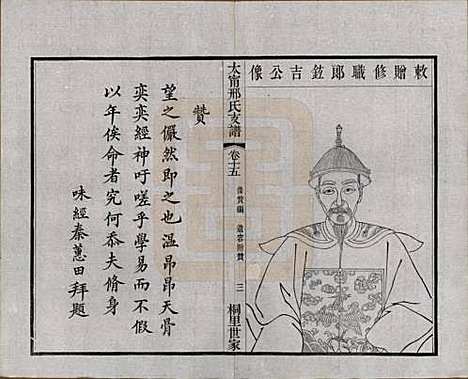 敕贈修職郎鉉吉公像
太甯邢氏支譜
卷十五
像贊編
遺容附贊
三
桐里世家
贊
望之儼然即之也溫昂昂天骨
奕奕經神吁嗟乎學易而不假
以年俟命者究何忝夫脩身
味經秦蕙田拜題